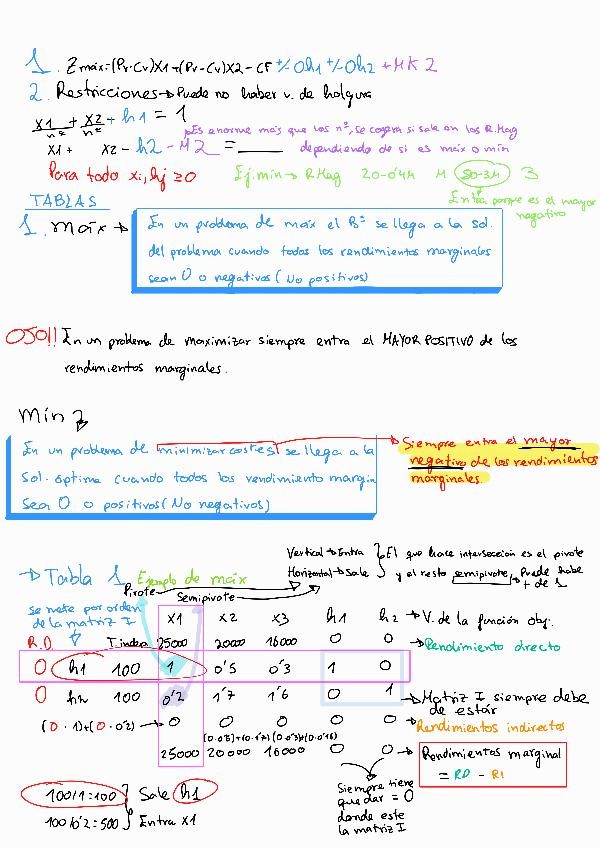 1. Zmáx=(Pv-Cv)X1+(Pv-Cv)X2-CF +/- 0h1 +/- 0h2 +MK2
2. Restricciones → Puede no haber v. de holgura
X1/nº + X2/nº + h1 = 1
Es enorme más que los nº, se cogerá si sale en los R.Mag
X1 + X2 - h2 - M2 = ____ dependiendo de si es máx o mín
Para todo xi, hj ≥ 0
Ej: min → R Mag 20-0'4M M 30-3M 3
Entra porque es el mayor negativo
TABLAS
1. máx →
En un problema de máx el Bº se llega a la sol.
del problema cuando todos los rendimientos marginales
sean 0 o negativos (No positivos)
OJO!! En un problema de maximizar siempre entra el MAYOR POSITIVO de los
rendimientos marginales.
Min Z
En un problema de minimizar costes se llega a la
sol. óptima cuando todos los rendimiento margin
sean 0 o positivos (No negativos)
Siempre entra el mayor
negativo de los rendimientos
marginales.
Vertical → Entra
Horizontal → Sale
El que hace intersección es el pivote
y el resto semipivote, → Puede habe
+ de 1
→ Tabla 1 Ejemplo de máx
Pivote
Semipivote
se mete por orden
de la matriz I
X1 X2 X3 h1 h2 → V. de la función obj.
R.D 25000 20000 16000 0 0 → Rendimiento directo
0 h1 100 1 0'5 0'3 1 0
0 h2 100 0'2 1'7 1'6 0 1 → Matriz I siempre debe
de estár
(0·1)+(0·0'2) → 0 0 0 0 0 → Rendimientos indirectos
(0·0'5)+(0·1'7) (0·0'3)+(0·0'16)
25000 20000 16000 0 0 → Rendimientos marginal
= RD - RI
100/1=100
100/0'2=500
Sale h1
Entra X1
Siempre tiene
que dar = 0
donde este
la matriz I